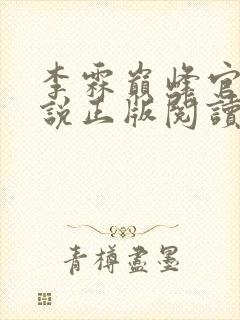 李霖巔峰官
說正版閱讀
青樽盡墨